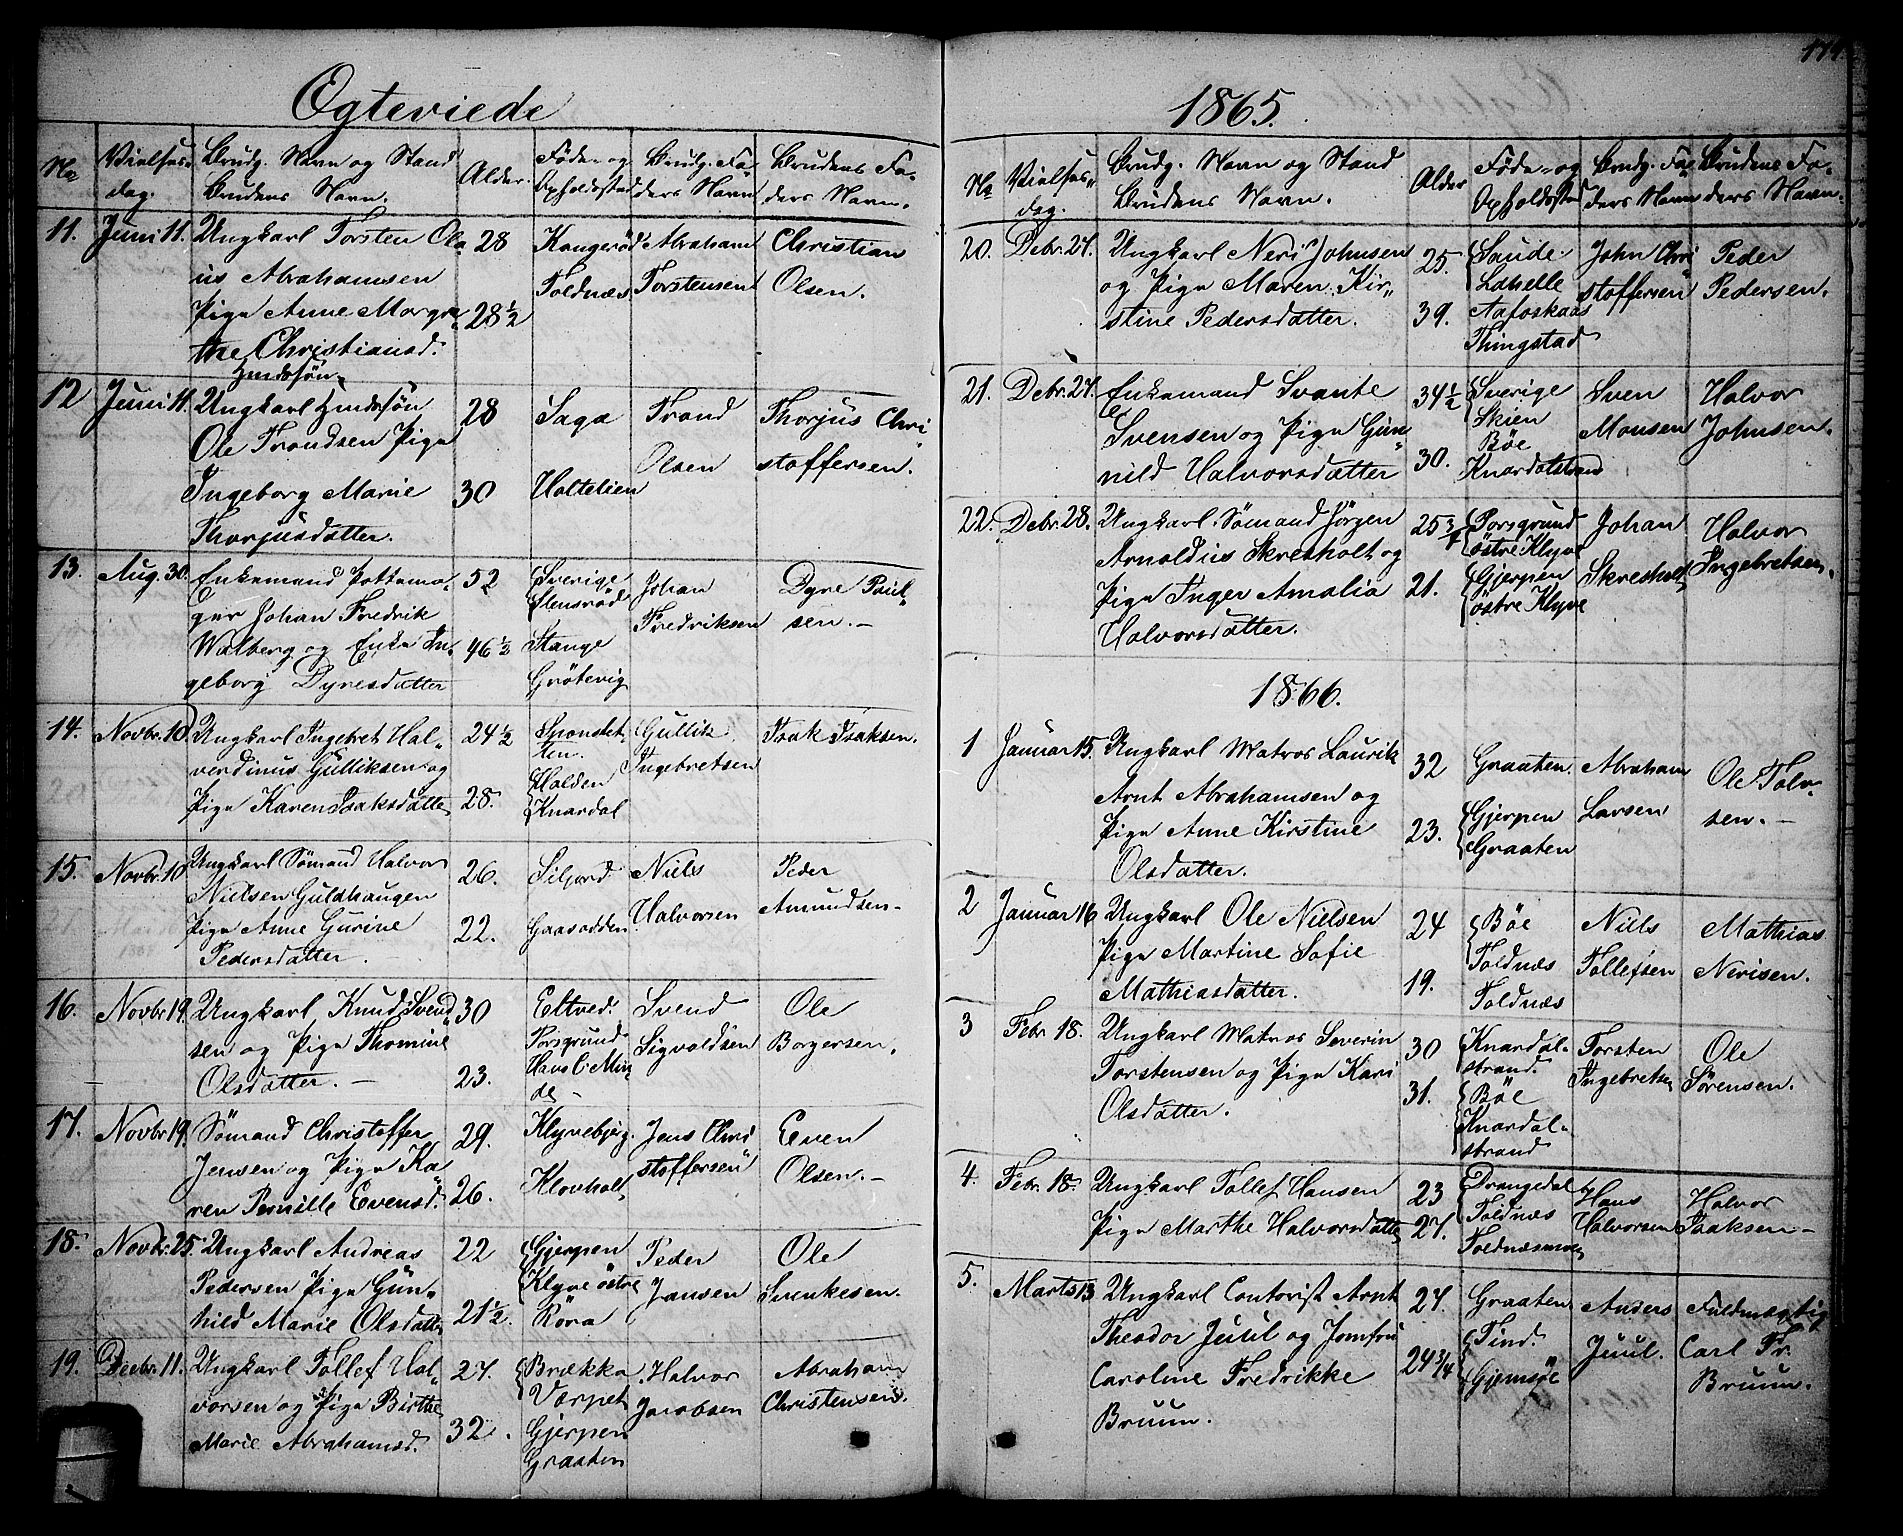 174.
Ægteviede
No
Vielses-
dag.
Brudg. Navn og Stand
Brudens Navn.
Alder.
Føde- og
Opholdssted
Brudg. Fa-
ders Navn
Brudens Fa-
ders Navn.
11.
Juni 11.
Ungkarl Torsten Ola
us Abrahamsen
Pige Anne Margre
the Christiansd.
28
28½
Kongerød
Toldnæs
Abraham
Torstensen
Christian
Olsen.
12
Juni 11.
Ungkarl
Ole Trondsen Pige
Ingeborg Marie
Thorjusdatter.
28
30
Saga
Holtelien
Trond
Olsen
Thorjus Chri
stoffersen.
13.
Aug. 30.
Enkemand Pottema-
ger Johan Fredrik
Walberg og Enke In-
geborg Dyresdatter
52
46½
Sverige
Stange
Grøtevig
Johan
Fredriksen
Dyre Paul
sen.-
14.
Novbr. 10
Ungkarl Ingebret Hal-
vordinus Gulliksen og
Pige Karen Isaksdatte
24½
28.
Halden
Knardal
Gullik
Ingebretsen
Isak Isaksen.
15.
Novbr. 10
Ungkarl Sømand Halvor
Nielsen Guldhaugen
Pige Anne Gurine
Pedersdatter.
26.
22.
Siljord
Gaasodden
Niels
Halvorsen
Peder
Amundsen-
16.
Novbr 19.
Ungkarl Knud Svend
sen og Pige Thomine
Olsdatter. -
30
23.
Eltved.
Porsgrund
Svend
Sigvoldsen
Ole
Borgersen.
17.
Novbr 19.
Sømand Christoffer
Jensen og Pige Ka
ren Pernille Evensd.
29.
26.
Klyvebjerg.
Klovholt
Jens Chri
stoffersen
Even
Olsen.-
18.
Novbr. 25.
Ungkarl Andreas
Pedersen Pige Gun-
hild Marie Olsdatte
22
21½.
Gjerpen
Klyve østre
Røra
Peder
Jansen
Ole
Svenkesen.
19.
Decbr. 11.
Ungkarl Tollef Hal-
vorsen og Pige Birthe
Marie Abrahamsd.
27.
32.
Brekka
Værpet
Gjerpen
Graaten
Halvor
Jacobsen
Abraham
Christensen.
1865.
No
Vielses-
dag.
Brudg. Navn og Stand
Brudens Navn.
Alder
Føde- og
Opholdssted
Brudg. Fa-
ders Navn
Brudens Fa-
ders Navn.
20.
Debr. 27.
Ungkarl Neri Johnsen
og Pige Maren Kir-
stine Pedersdatter.
25.
39.
Saude
Lahelle
Aafoskaas
Thingstad
John Chri
stoffersen
Peder
Pedersen.
21.
Debr. 27.
Enkemand Svante
Svensen og Pige Gun-
nild Halvorsdatter
34½
30.
Sverige
Skien
Bøe
Knardalstrand
Sven
Monsen
Halvor
Johnsen.
22.
Debr. 28.
Ungkarl Sømand Jørgen
Arnoldus Skresholt og
Pige Inger Amalia
Halvorsdatter.
25¾
21.
Porsgrund
østre Klyve
Gjerpen
østre Klyve
Johan
Skresholt
Halvor
Ingebretsen.
1866.
1
Januar 15.
Ungkarl Matros Laurik
Arnt Abrahamsen og
Pige Anne Kirstine
Olsdatter.
32
23.
Graaten.
Gjerpen
Graaten
Abraham
Larsen
Ole Tolv-
sen.-
2
Januar 16
Ungkarl Ole Nielsen
Pige Martine Sofie
Mathiasdatter.
24
19.
Bøe
Toldnæs
Toldnæs
Niels
Tollefsen
Mathias
Nerisen.
3
Febr 18.
Ungkarl Matros Severin
Torstensen og Pige Kari
Olsdatter.
30
31.
Knardal-
strand.
Bøe
Knardal-
strand
Torsten
Ingebretsen
Ole
Sørensen.
4.
Febr. 18.
Ungkarl Tollef Hansen
Pige Marthe Halvorsdatte
23
27.
Drangedal
Toldnæs
Toldnæsmoe
Hans
Halvorsen
Halvor
Isaksen-
5.
Marts 13
Ungkarl Contorist Arnt
Theodor Juul og Jomfru
Caroline Fredrikke
Bruun.
27.
24¾
Graaten
Tind.
Gjemsøe
Anders
Juul.
Fuldmægtig
Carl Fr.
Bruun.